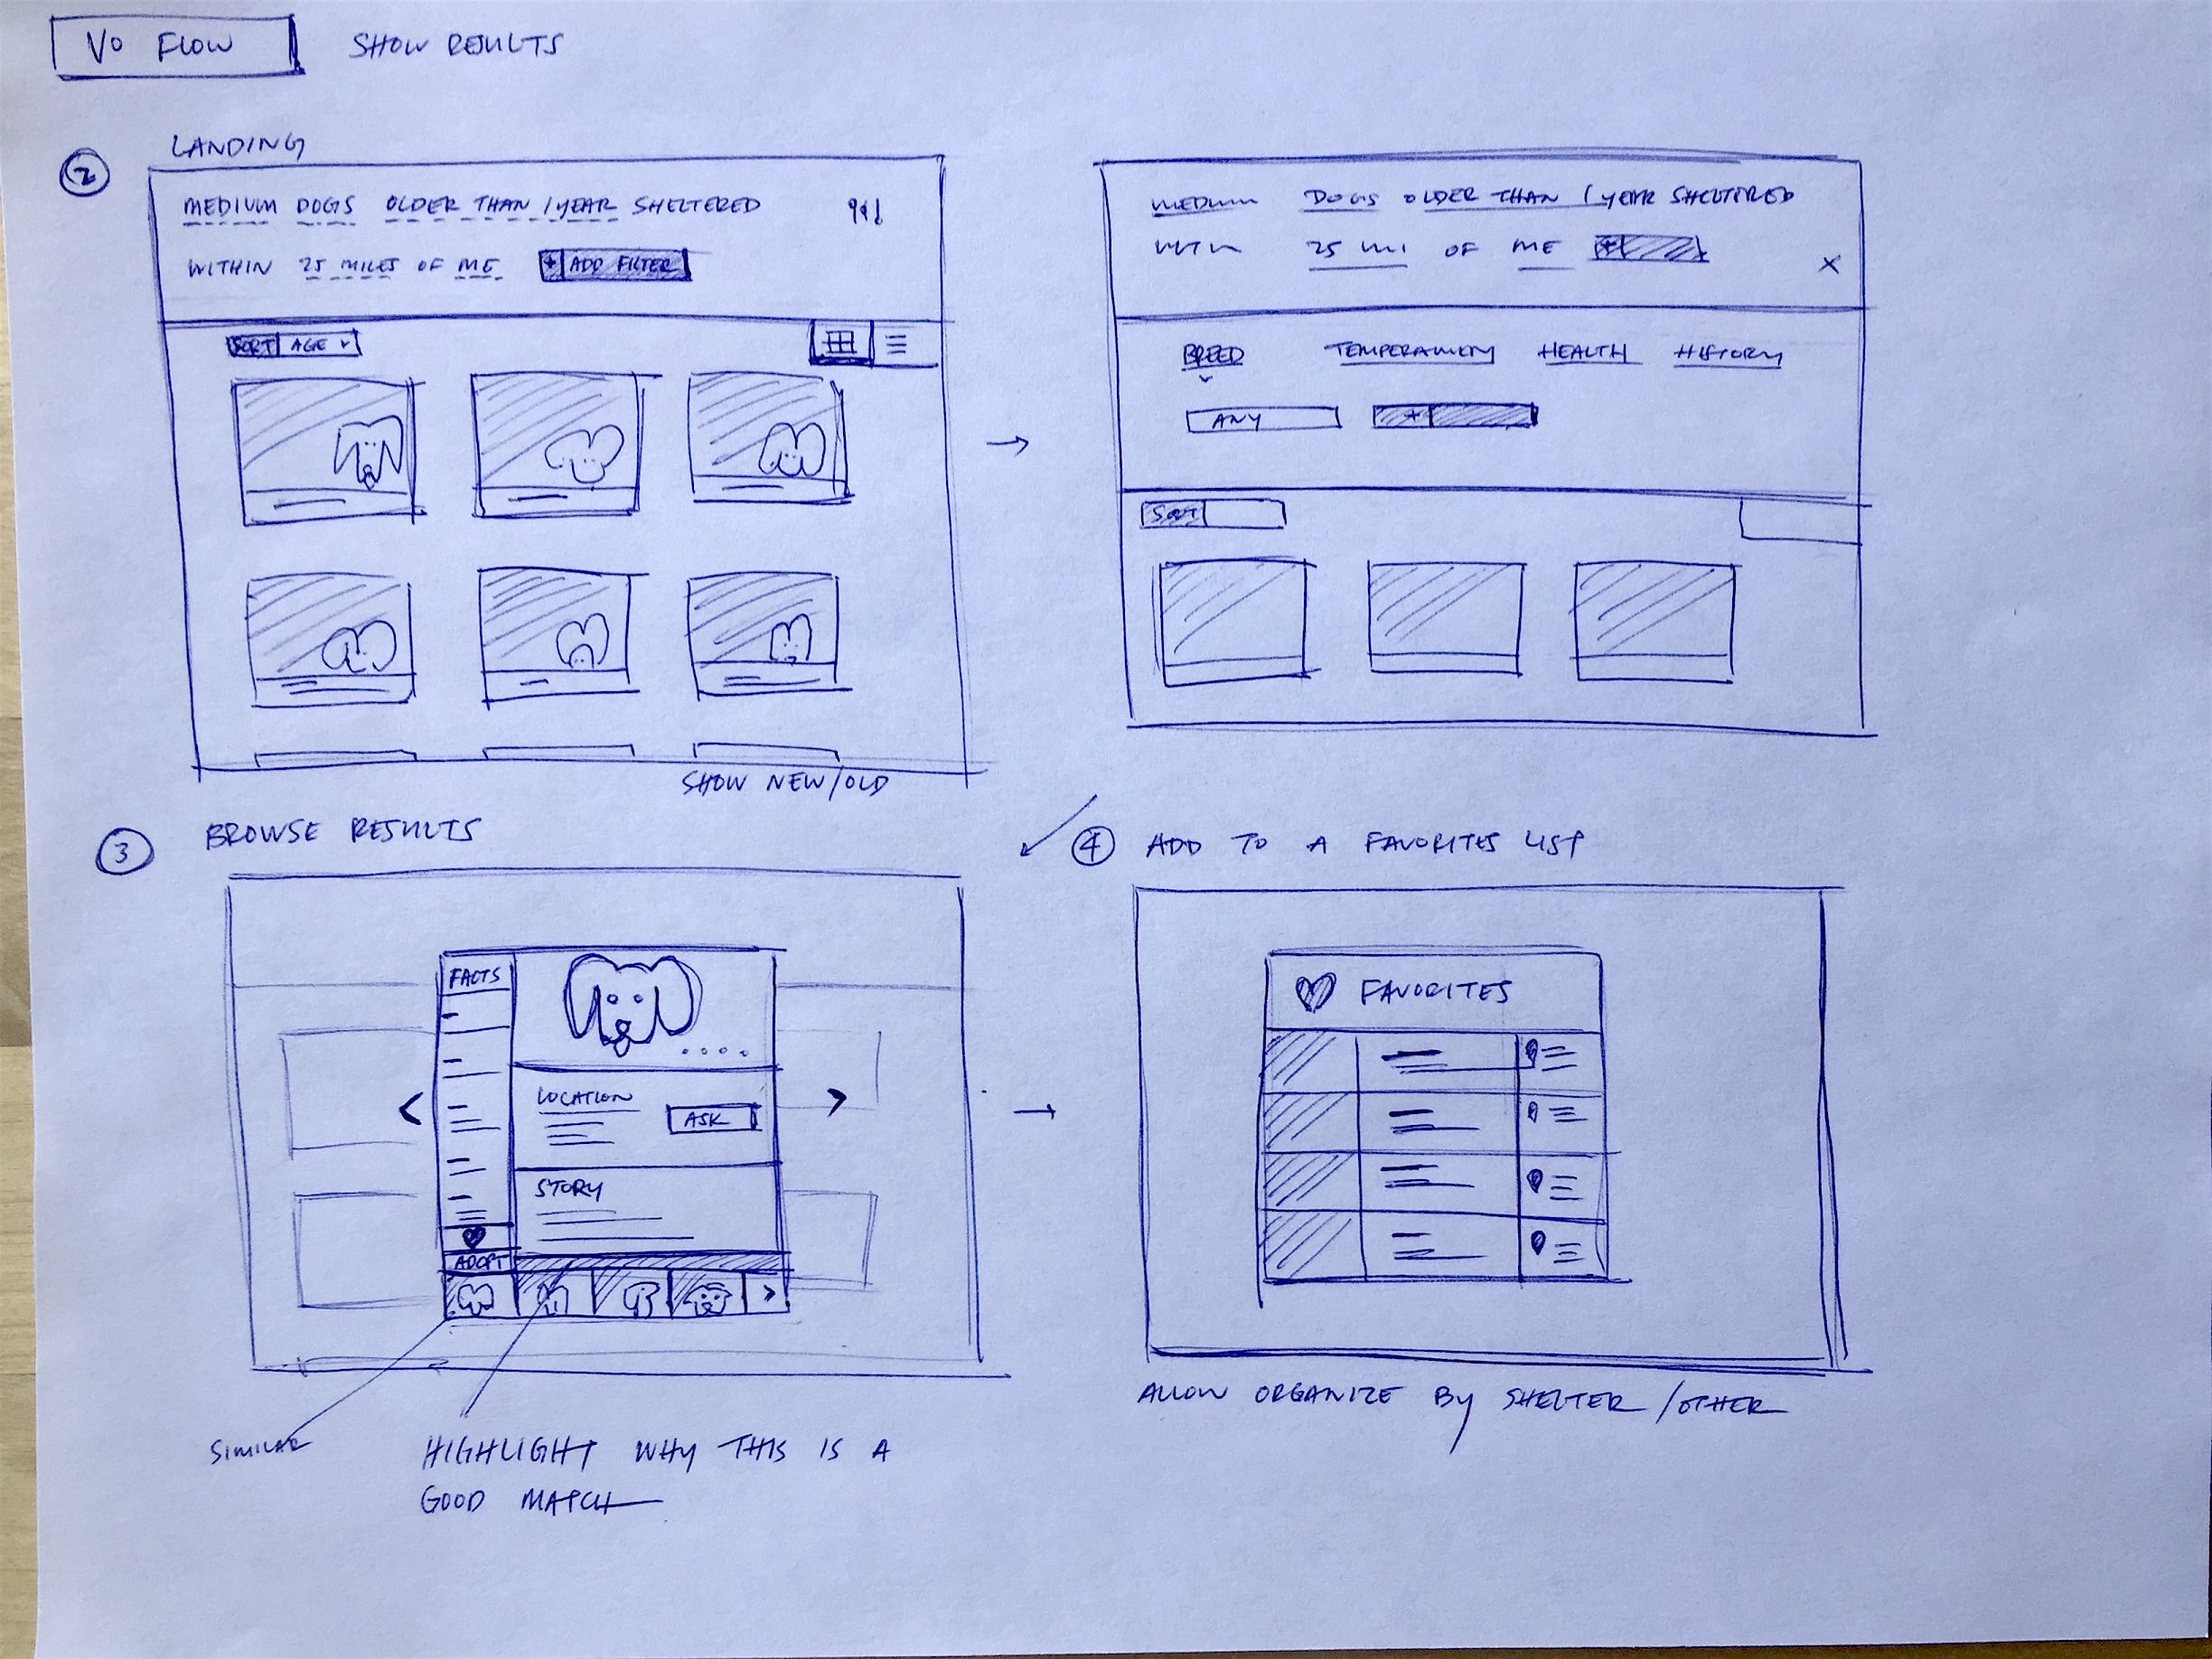 V0 FLOW
SHOW RESULTS
2
LANDING
MEDIUM DOGS OLDER THAN 1 YEAR SHELTERED
WITHIN 25 MILES OF ME + ADD FILTER
SORT AGE
SHOW NEW/OLD
MEDIUM DOGS OLDER THAN 1 YEAR SHELTERED
25 MI OF ME +
X
BREED TEMPERAMENT HEALTH HISTORY
ANY +
SORT
3
BROWSE RESULTS
FACTS
<
LOCATION
ASK
>
STORY
ADOPT
>
SIMILAR
HIGHLIGHT WHY THIS IS A
GOOD MATCH
4
ADD TO A FAVORITES LIST
FAVORITES
ALLOW ORGANIZE BY SHELTER/OTHER